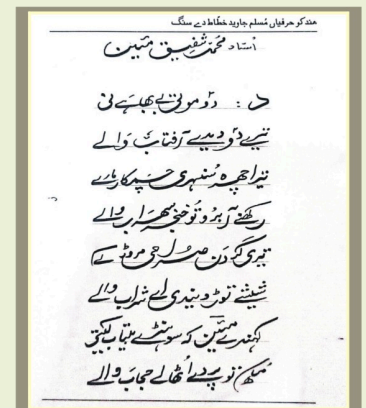 هندکو حرفیاں مُسلم جاوید خطّاط دے سنگ
اُستاد محمّد شفیق مئین
د : دو موتی بے بھلے نی
تیرے دو دیدے آفتاب والے
تیرا چہرہ سُنہری چمکار مارے
رکھنے آبرو تُو خنجر محراب والے
تیری گردن صُراحی مروڑ کے
شیشے توڑ دیندی اے شراب والے
کہندے مئین کہ سوہنڑے بیتاب کیتی
مُکھ تو پردے اُٹھا لے حجاب والے